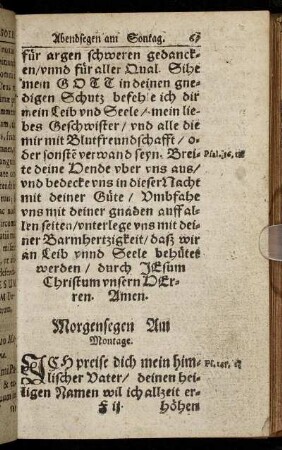 Abendsegen am Sontag. 67
für argen schweren gedanck-
en/vnnd für aller Qual Sihe
mein GOTT in deinen gne-
digen Schutz befehle ich dir
mein Leib vnd Seele/ mein lie-
bes Geschwister/ vnd alle die
mir mit Blutfreundschafft/ o-
der sonstē verwand seyn. Brei-
te deine Hende vber vns aus/
vnd bedecke vns in dieser Nacht
mit deiner Güte/ Vmbfahe
vns mit deiner gnaden auff al-
len seiten/vnterlege vns mit dei-
ner Barmhertzigkeit/ daß wir
an Leib vnnd Seele behütet
werden/ durch JEsum
Christum vnsern HEr-
ren. Amen.
Morgensegen Am
Montage.
ICH preise dich mein him-
lischer Vater/ deinen hei-
ligen Namen wil ich allzeit er-
F ij höhen